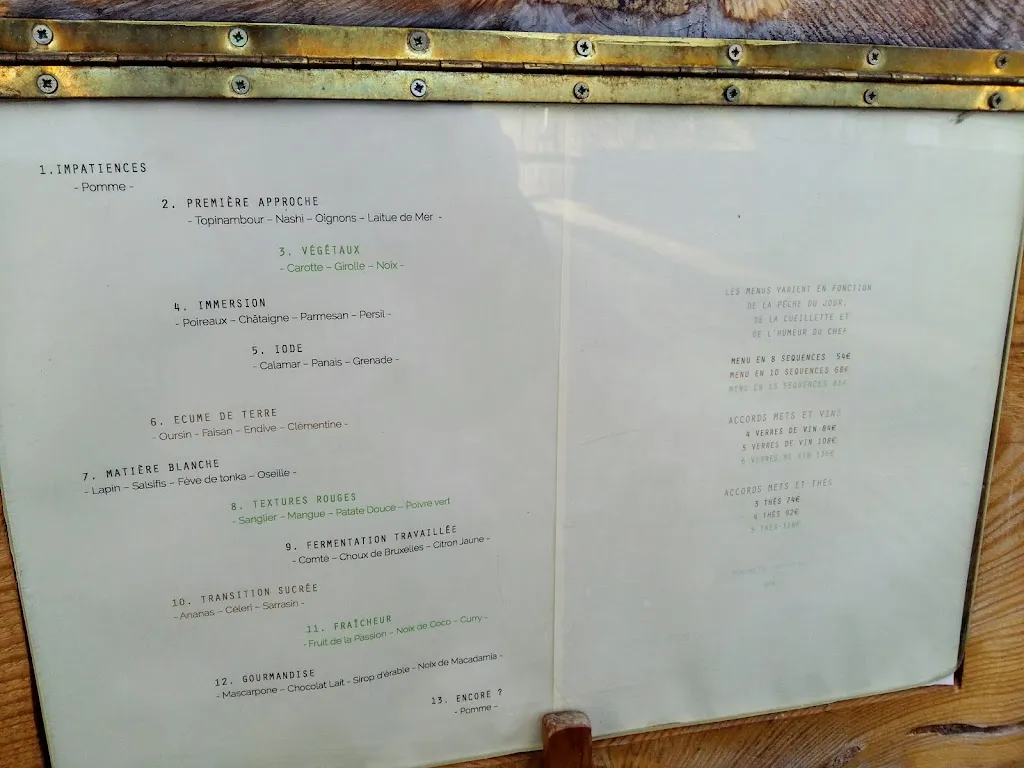 1.IMPATIENCES
- Pomme -
2. PREMIÈRE APPROCHE
- Topinambour – Nashi – Oignons – Laitue de Mer -
3. VÉGÉTAUX
- Carotte – Girolle – Noix -
4. IMMERSION
- Poireaux – Châtaigne – Parmesan – Persil -
5. IODE
- Calamar – Panais – Grenade -
6. ECUME DE TERRE
- Oursin - Faisan – Endive – Clémentine -
7. MATIÈRE BLANCHE
- Lapin – Salsifis – Fève de tonka – Oseille -
8. TEXTURES ROUGES
- Sanglier – Mangue – Patate Douce – Poivre vert
9. FERMENTATION TRAVAILLÉE
- Comté – Choux de Bruxelles – Citron Jaune -
10. TRANSITION SUCRÉE
- Ananas – Céleri – Sarrasin -
11. FRAÎCHEUR
- Fruit de la Passion – Noix de Coco – Curry -
12. GOURMANDISE
- Mascarpone – Chocolat Lait - Sirop d'érable - Noix de Macadamia -
13. ENCORE ?
- Pomme -
LES MENUS VARIENT EN FONCTION
DE LA PÊCHE DU JOUR,
DE LA CUEILLETTE ET
DE L'HUMEUR DU CHEF
MENU EN 8 SEQUENCES 54€
MENU EN 10 SEQUENCES 68€
MENU EN 13 SEQUENCES
ACCORDS METS ET VINS
4 VERRES DE VIN 84€
5 VERRES DE VIN 108€
VERRES DE VIN
ACCORDS METS ET THÉS
3 THÉS 74€
4 THÉS 92€
5 THÉS